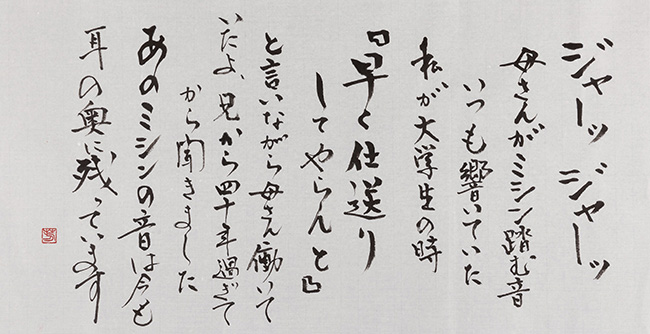 ジャーッ ジャーッ
母さんがミシン踏む音
いつも響いていた
私が大学生の時
『早く仕送り
してやらんと』
と言いながら母さん働いて
いたよ、兄から四十年過ぎて
から聞きました
あのミシンの音は今も
耳の奥に残っています